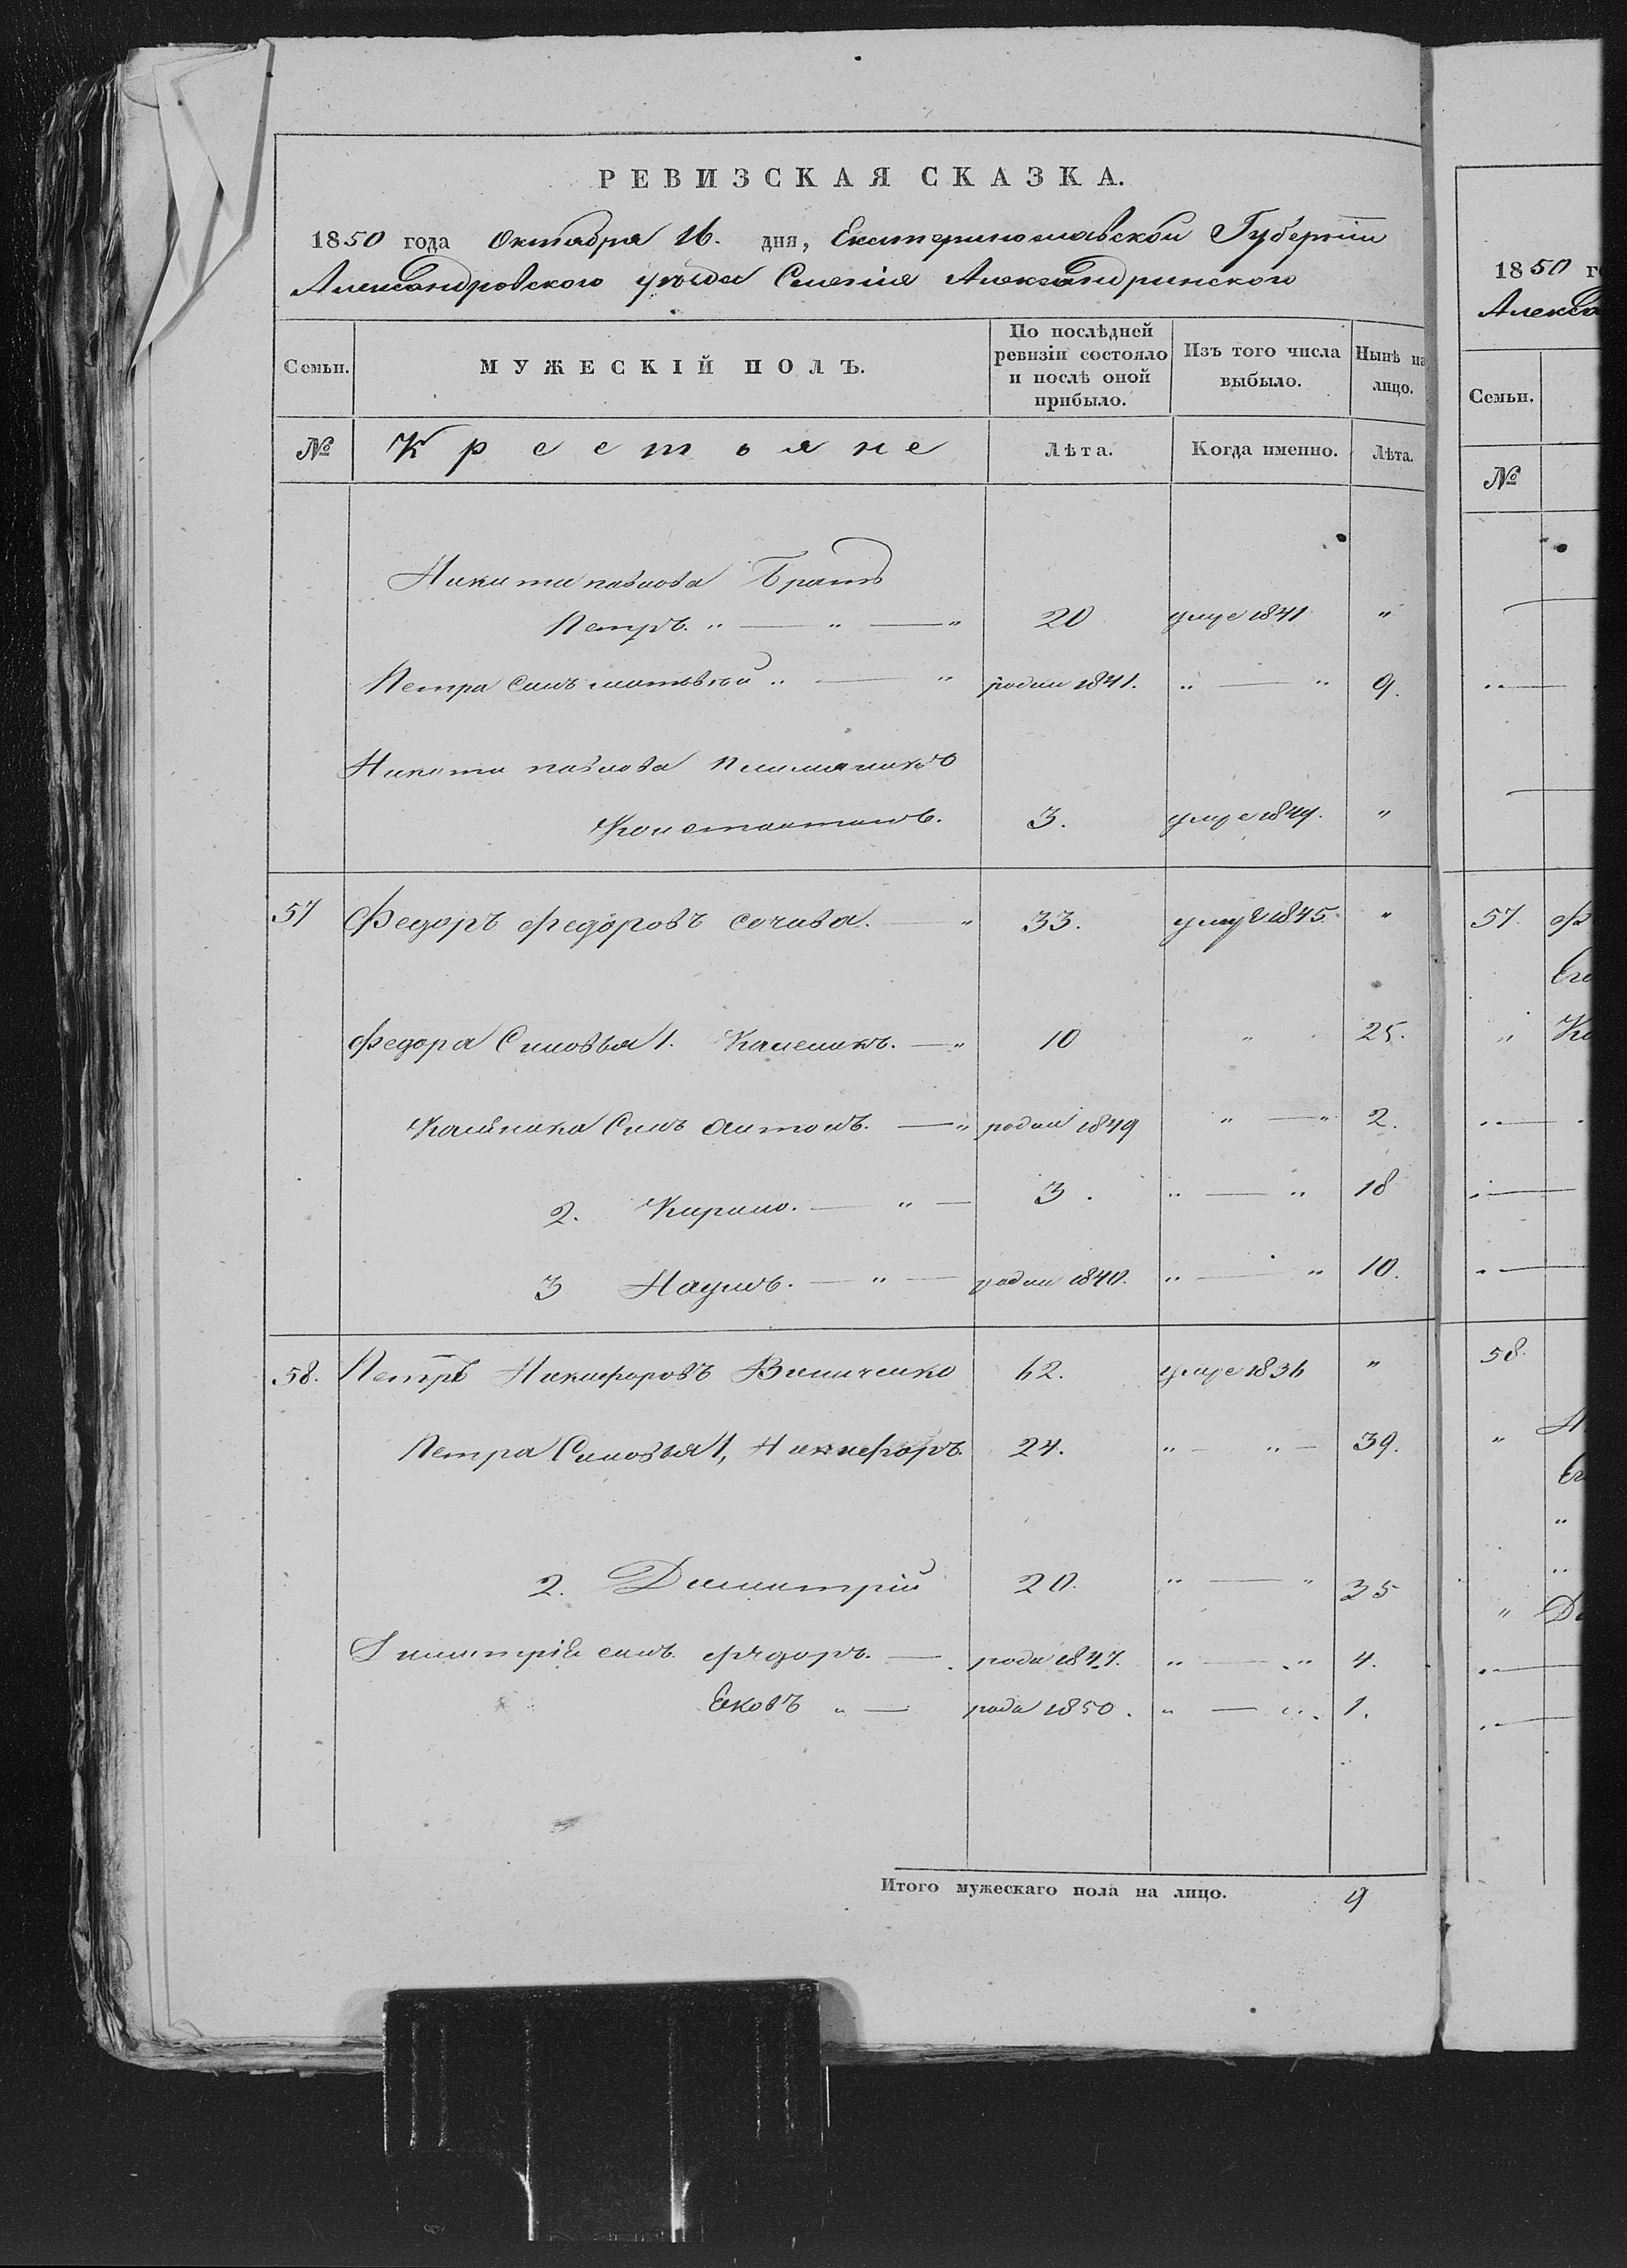 РЕВИЗСКАЯ СКАЗКА.
1850 года Октября 16. дня, Екатеринославской Губернии
Александровского уѣзда Селенія Александринского
Семьи. МУЖЕСКІЙ ПОЛЪ. По послѣдней ревизіи состояло и послѣ оной прибыло. Изъ того числа выбыло. Нынѣ на лицо.
№ Крестьяне Лѣта. Когда именно. Лѣта.
Никити павлова Братъ
Петръ. " — " — " 20 умре 1841 "
Петра синъ матвѣй " — " родил 1841. " — " 9.
Никити павлова племяникъ
Константинъ. 3. умре 1844. "
57 Федоръ федоровъ сочава. — " 33. умре 1845. "
федора Синовья 1. Каленикъ. — " 10 " 25.
Калѣника Синъ антонъ. — " родил 1849 " — " 2.
2. Кирило. — " — 3. " — " 18
3 Наумъ. — " — родил 1840. " — " 10.
58. Петръ Никифоровъ Виниченко 62. умре 1836 "
Петра Синовья 1, Никифоръ. 24. " — " — 39.
2. Димитрій 20. " — " 35
Димитрія синъ. фѣдоръ. — роди 1847. " — " 4.
Яковъ " — роди 1850. " — " 1.
Итого мужескаго пола на лицо. 9
1850 г
Алекса
Семьи.
№
57. Ф
Ег
" Ка
58.
" Н
Ег
"
"
" Ди